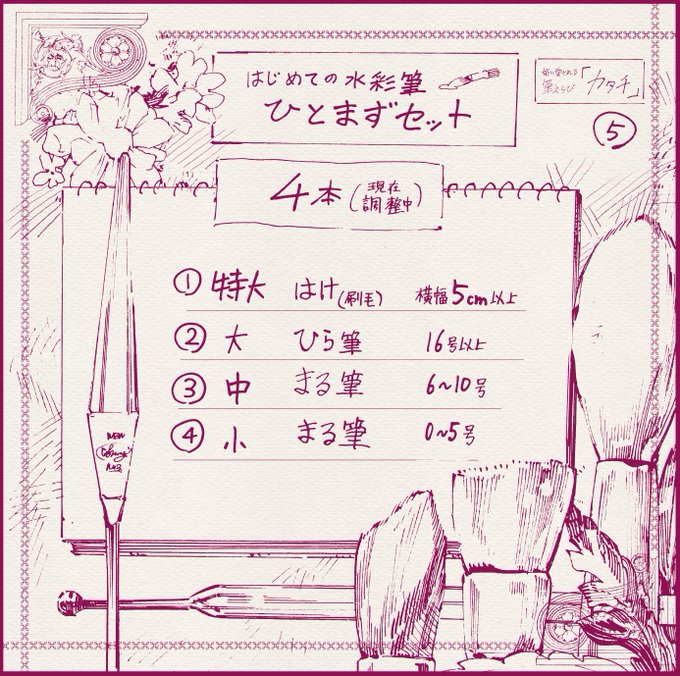 はじめての水彩筆
ひとまずセット
筆えらび「カタチ」
⑤
4本(現在調整中)
① 特大 はけ(刷毛) 横幅5cm以上
② 大 ひら筆 16号以上
③ 中 まる筆 6〜10号
④ 小 まる筆 0〜5号